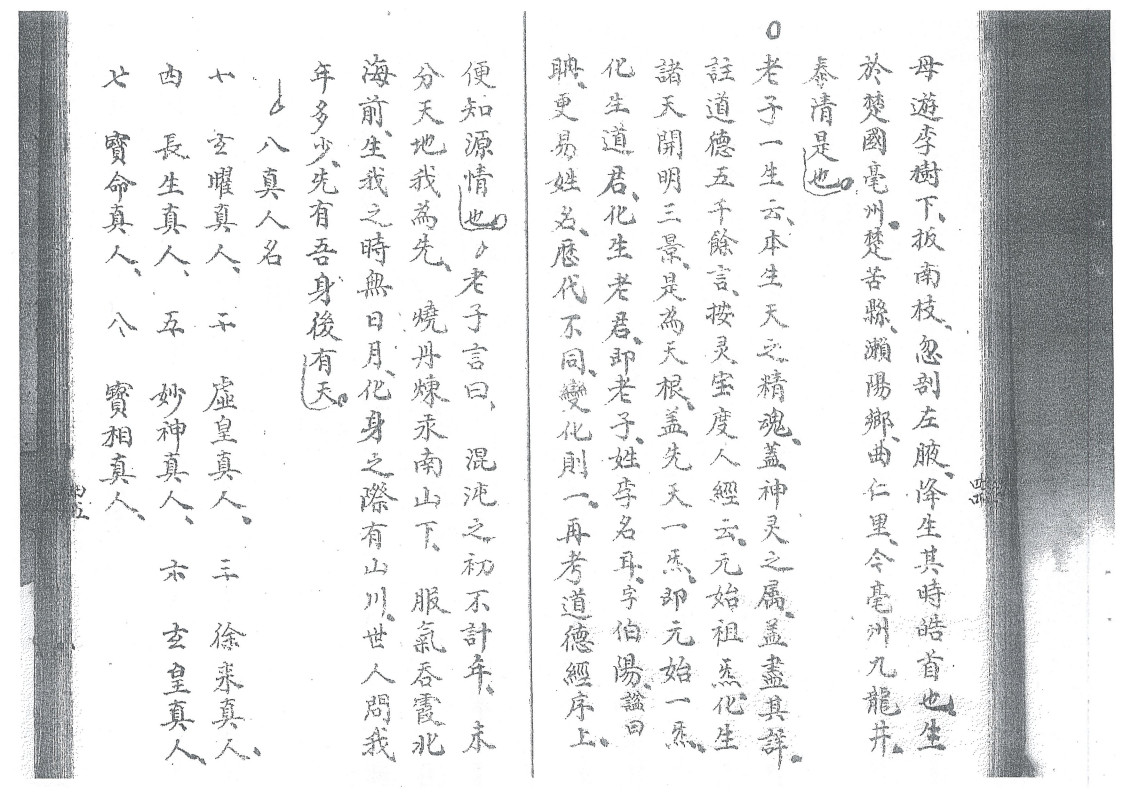 母遊李樹下、扳南枝、忽剖左腋、降生其時皓首也、生
於楚國亳州。楚苦縣、瀬陽鄉、曲仁里、今亳州九龍井。
泰清是也。
老子一生云、本生天之精魂、蓋神灵之属、盖盡其詳。
註道德五千餘言、按灵宝度人經云、元始祖炁、化生
諸天開明三景、是為天根、盖先天一炁、即元始一炁、
化生道君、化生老君、即老子、姓李名耳、字伯陽、謚曰
聃、更易姓名、歷代不同、變化則一、再考道德經序上、
便知源情也。老子言曰、混沌之初不計年、未
分天地我為先、燒丹煉汞南山下、服氣吞霞北
海前、生我之時無日月、化身之際有山川、世人問我
年多少、先有吾身後有天。
八真人名
玄曜真人、二 虛皇真人、三 徐来真人、
四 長生真人、五 妙神真人、六 玄皇真人、
七 寶命真人、八 寶相真人、